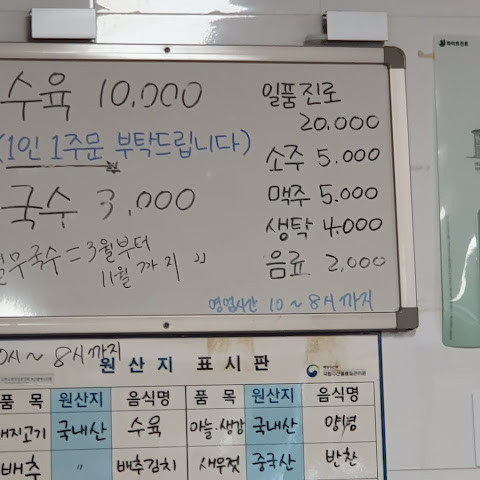 수육 10,000
(1인 1주문 부탁드립니다)
국수 3,000
열무국수 = 3월부터
11월 까지 〃
일품진로
20,000
소주 5.000
맥주 5.000
생탁 4,000
음료 2,000
영업시간 10~8시까지
0시~8시까지
원산지 표시판
품 목 원산지 음식명 품 목 원산지 음식명
돼지고기 국내산 수육 마늘·생강 국내산 양념
배추 〃 배추김치 새우젓 중국산 반찬
하이트진로